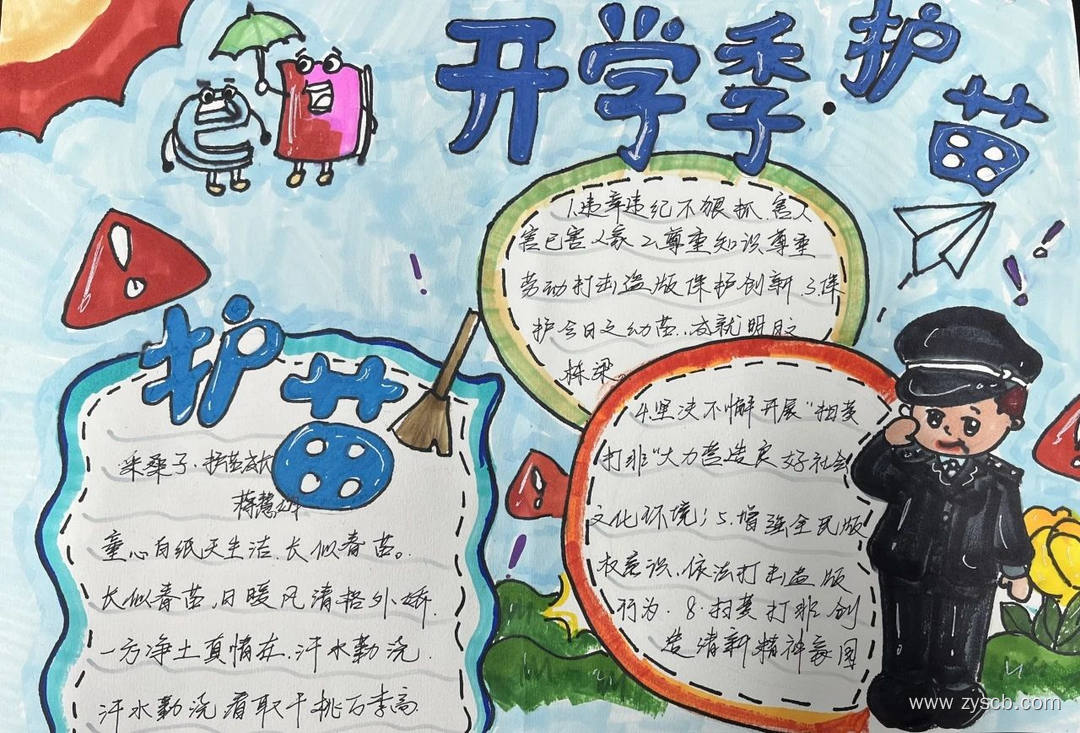 开学季·护苗
1.违章违纪不狠抓.害人
害己害人家2.尊重知识尊重
劳动打击盗版保护创新.3.保
护今日之幼苗.成就明日
栋梁。
护苗
采桑子·护苗
蒋慧
童心白纸天生洁.长似春苗。
长似春苗,日暖风清格外娇.
一方净土真情在.汗水勤浇.
汗水勤浇看取千桃万李高.
4.坚决不懈开展"扫黄
打非"大力营造良好社会
文化环境;5.增强全民版
权意识.依法打击盗版
行为.8.扫黄打非.创
造清新精神家园
www.zyscb.com